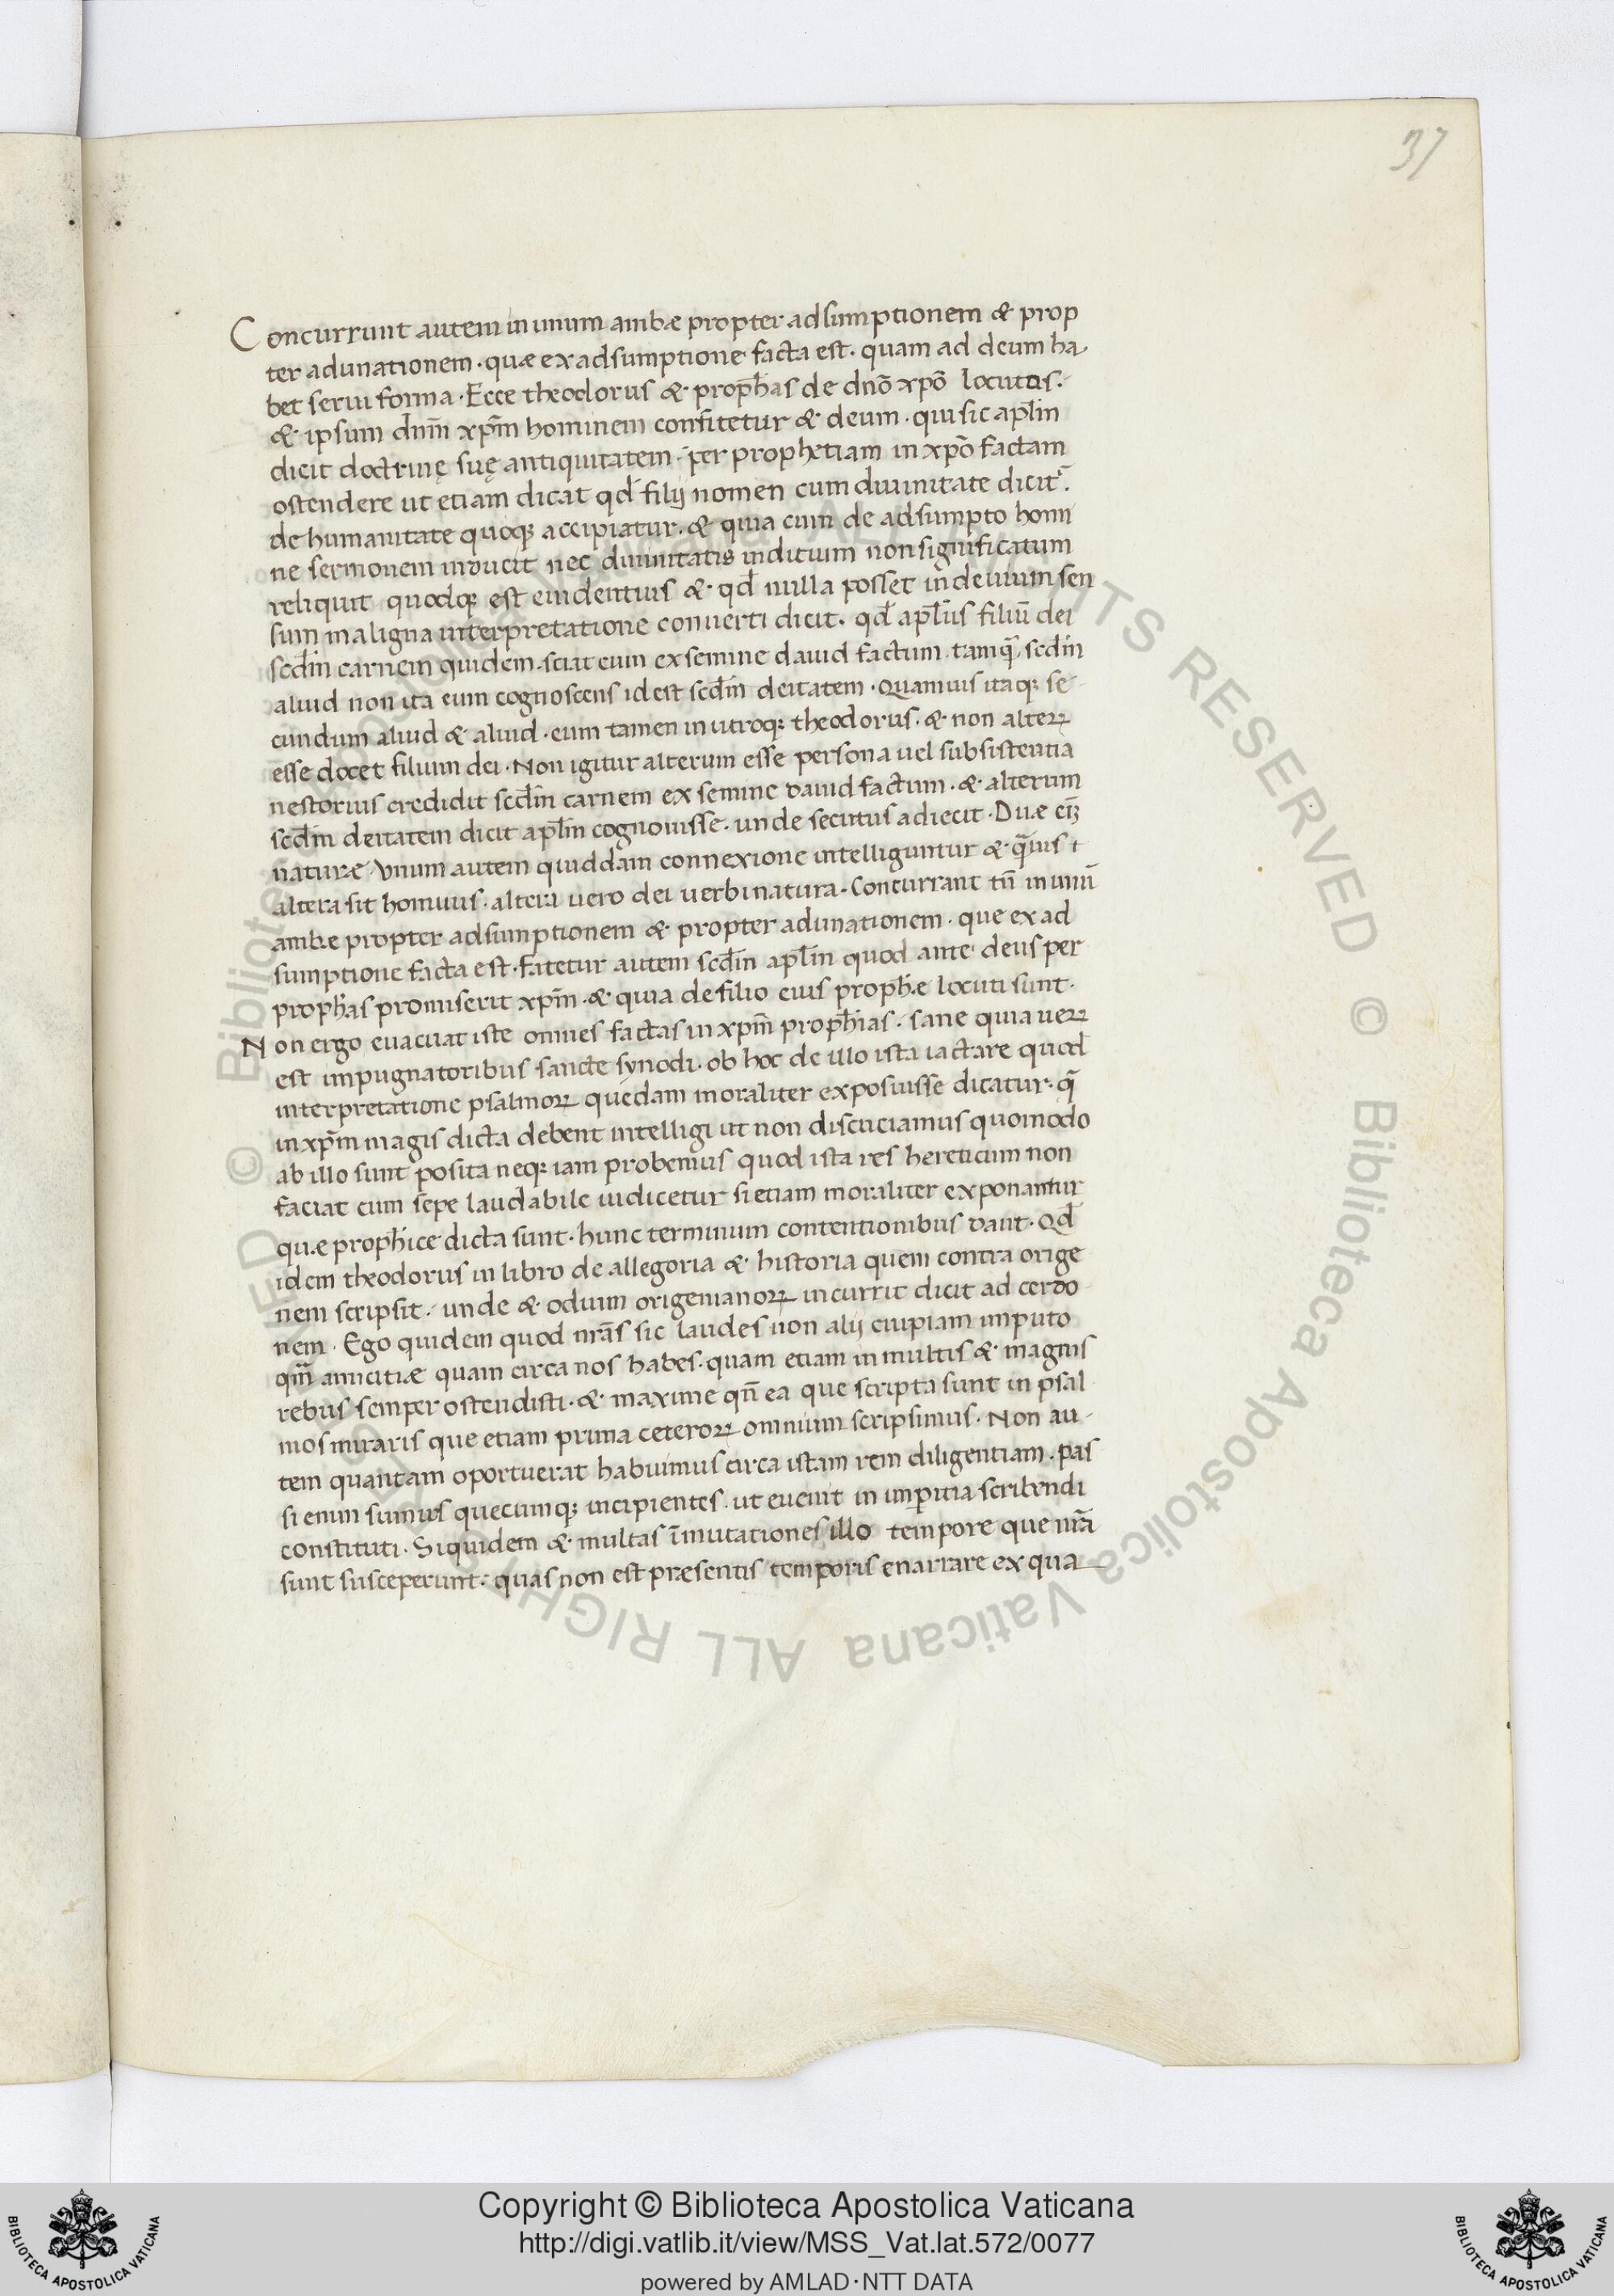 37
Concurrunt autem in unum ambæ propter adsumptionem & prop
ter adunationem · quæ ex adsumptione facta est · quam ad deum ha
bet serui forma · Ecce theodorus & proph̄as de dn̄o xp̄o locutus ·
& ipsum dn̄m xp̄m hominem confitetur & deum · qui sic ap̄lm
dicit doctrinę suę antiquitatem · per prophetiam in xp̄o factam
ostendere ut etiam dicat qd̄ filij nomen cum diuinitate dicit̄ ·
de humanitate quoq; accipiatur · & quia cum de adsumpto homi
ne sermonem inducit nec diuinitatis inditium non significatum
reliquit quodq; est euidentius & qd̄ nulla posset in deuium sen
sum maligna interpretatione conuerti dicit · qd̄ ap̄lus filiū dei
scd̄m carnem quidem sciat eum ex semine dauid factum tamq̄ scd̄m
aliud non ita eum cognoscens id est scd̄m deitatem · Quamuis itaq; se
cundum aliud & aliud · eum tamen in utroq; theodorus · & non alterꝝ
esse docet filium dei · Non igitur alterum esse persona uel subsistentia
nestorius credidit scd̄m carnem ex semine dauid factum · & alterum
scd̄m deitatem dicit ap̄lm cognouisse · unde secutus adiecit · Duæ
naturæ Vnum autem quiddam connexione intelliguntur & q̄uis
altera sit hominis · altera uero dei uerbi natura · Concurrant tn̄ in unū
ambæ propter adsumptionem & propter adunationem · que ex ad
sumptione facta est · Fatetur autem scd̄m ap̄lm quod ante deus per
proph̄as promiserit xp̄m · & quia de filio eius proph̄æ locuti sunt ·
Non ergo euacuat iste omnes factas in xp̄m proph̄ias · sane quia uerꝝ
est impugnatoribus sanctæ synodi · ob hoc de illo ista iactare quod
interpretatione psalmoꝝ quedam moraliter exposuisse dicatur · q̄
in xp̄m magis dicta debent intelligi ut non discuciamus quomodo
ab illo sunt posita neq; iam probemus quod ista res hereticum non
faciat cum sepe laudabile iudicetur si etiam moraliter exponantur
quæ proph̄ice dicta sunt · hunc terminum contentionibus dant · Qd̄
idem theodorus in libro de allegoria & historia quem contra orige
nem scripsit · unde & odium origenianoꝝ incurrit dicit ad cerdo
nem · Ego quidem quod nr̄as sic laudes non alij cuipiam imputo
qm̄ amicitiæ quam circa nos habes · quam etiam in multis & magnis
rebus semper ostendisti · & maxime qn̄ ea que scripta sunt in psal
mos miraris que etiam prima ceteroꝝ omnium scripsimus · Non au
tem quantam oportuerat habuimus circa istam rem diligentiam · pas
si enim sumus quecumq; incipientes · ut euenit in imperitia scribendi
constituti · Siquidem & multas īmutationes illo tempore que nr̄a
sunt susceperunt · quas non est præsentis temporis enarrare ex qua
© Biblioteca Apostolica Vaticana ALL RIGHTS RESERVED © Biblioteca Apostolica Vaticana ALL RIGHTS RESERVED
BIBLIOTECA APOSTOLICA VATICANA
Copyright © Biblioteca Apostolica Vaticana
http://digi.vatlib.it/view/MSS_Vat.lat.572/0077
powered by AMLAD·NTT DATA
BIBLIOTECA APOSTOLICA VATICANA